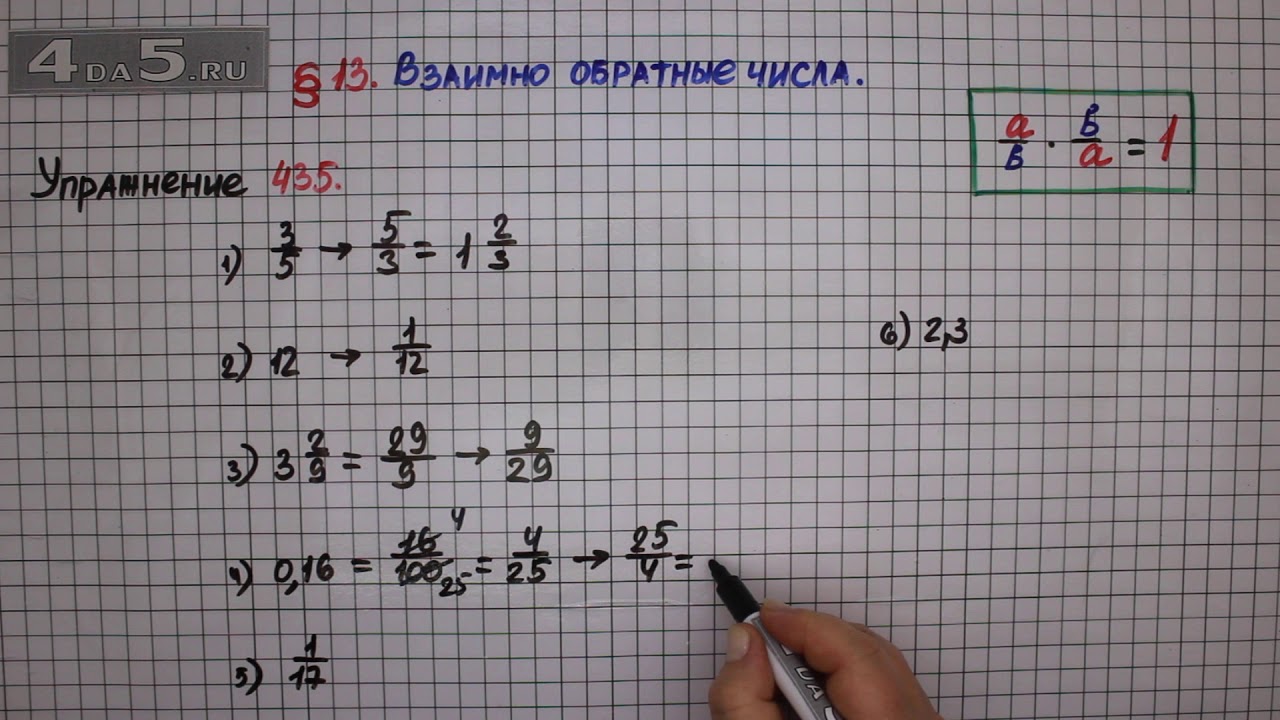 4DA5.RU
§ 13. Взаимно обратные числа.
a/в · в/a = 1
Упражнение 435.
1) 3/5 → 5/3 = 1 2/3
2) 12 → 1/12
6) 2,3
3) 3 2/9 = 29/9 → 9/29
4) 0,16 = 16/100 4 25 = 4/25 → 25/4 =
5) 1/17